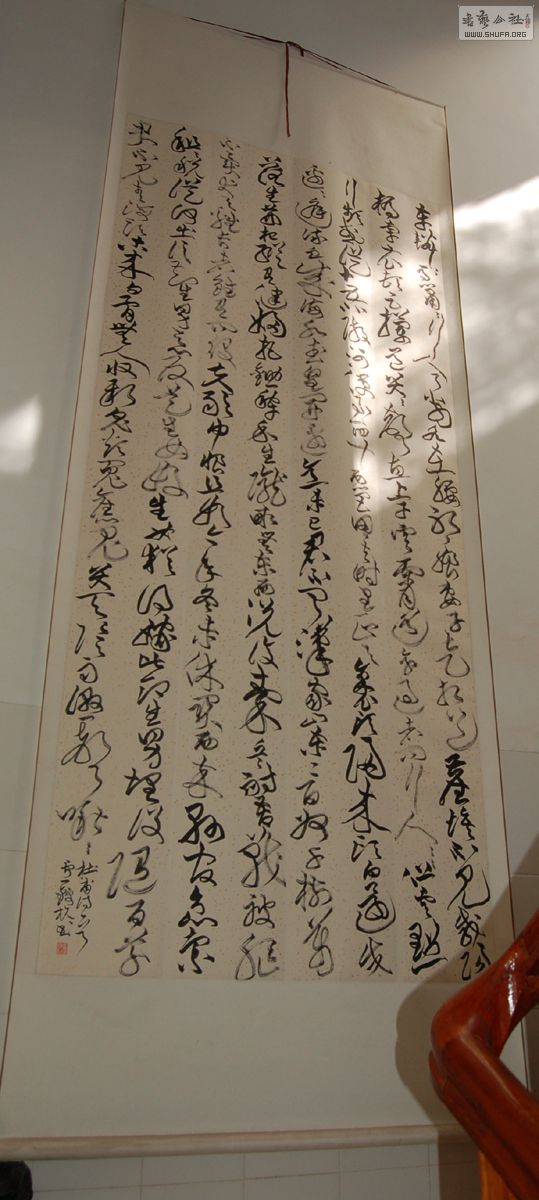 車轔轔馬蕭蕭行人弓箭各在腰耶娘妻子走相送塵埃不見咸陽
橋牽衣頓足攔道哭哭聲直上干雲霄道旁過者問行人行人但云點
行頻或從十五北防河便至四十西營田去時里正與裹頭歸來頭白還戍
邊邊庭流血成海水武皇開邊意未已君不聞漢家山東二百州千村萬
落生荊杞縱有健婦把鋤犁禾生隴畝無東西況復秦兵耐苦戰被驅
不異犬與雞長者雖有問役夫敢申恨且如今年冬未休關西卒縣官急索
租租稅從何出信知生男惡反是生女好生女猶得嫁比鄰生男埋沒隨百草
君不見青海頭古來白骨無人收新鬼煩冤舊鬼哭天陰雨濕聲啾啾
杜甫詩兵車
行一首
WWW.SHUFA.ORG